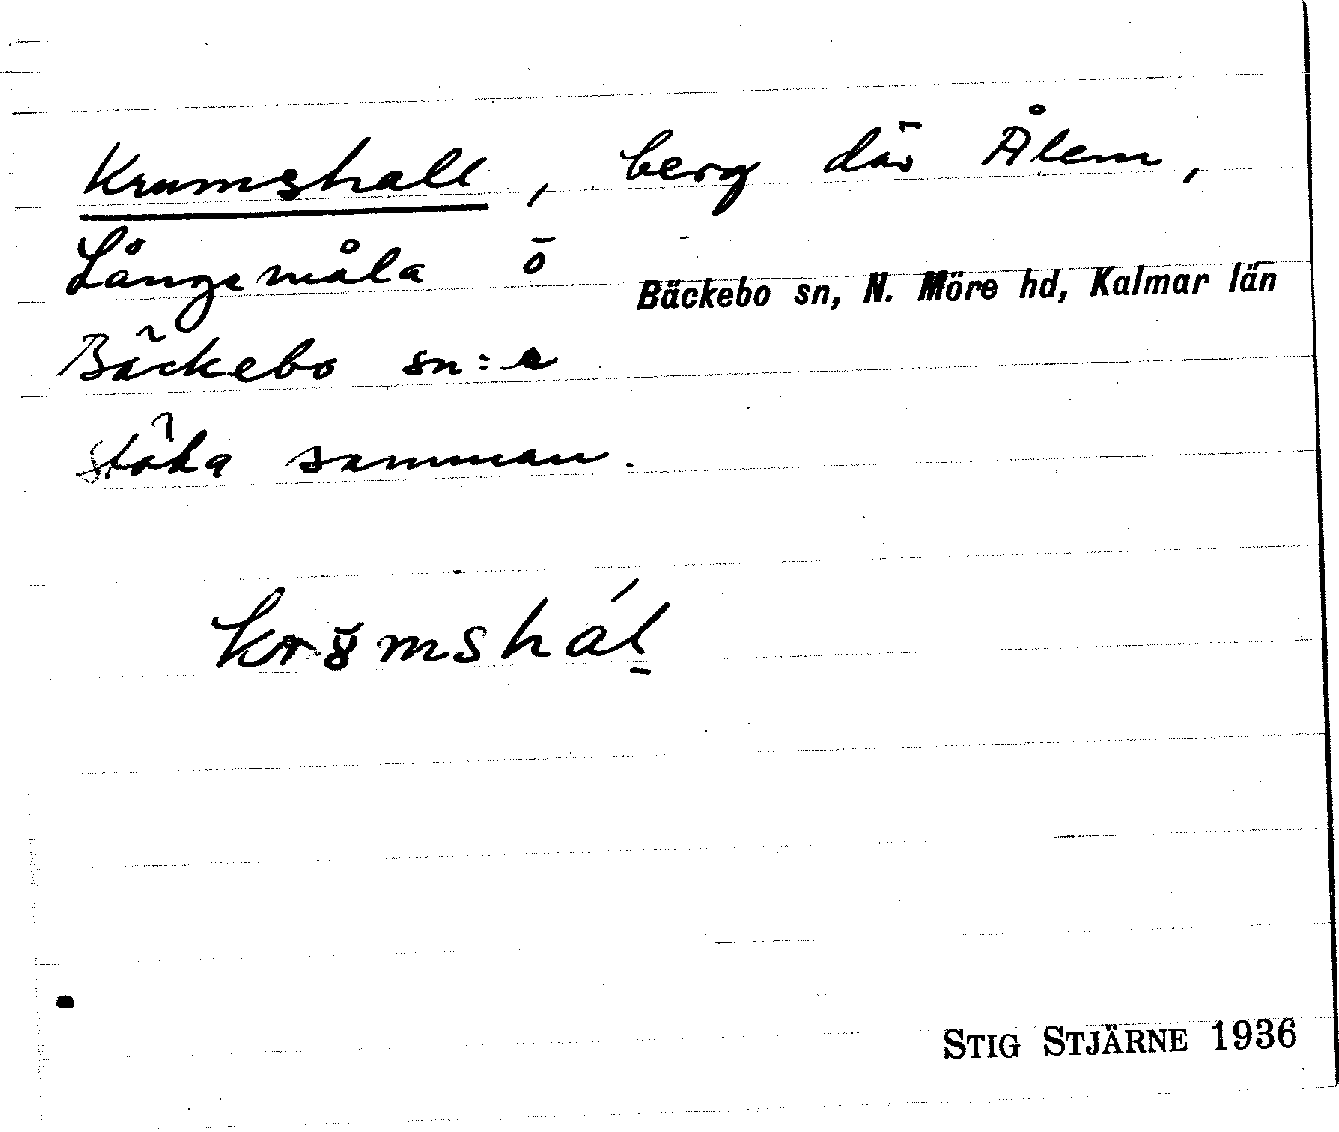 Krumshall, berg där Ålem,
Långemåla ö
Bäckebo sn, N. Möre hd, Kalmar län
Bäckebo sn:r
stöta samman.
STIG STJÄRNE 1936